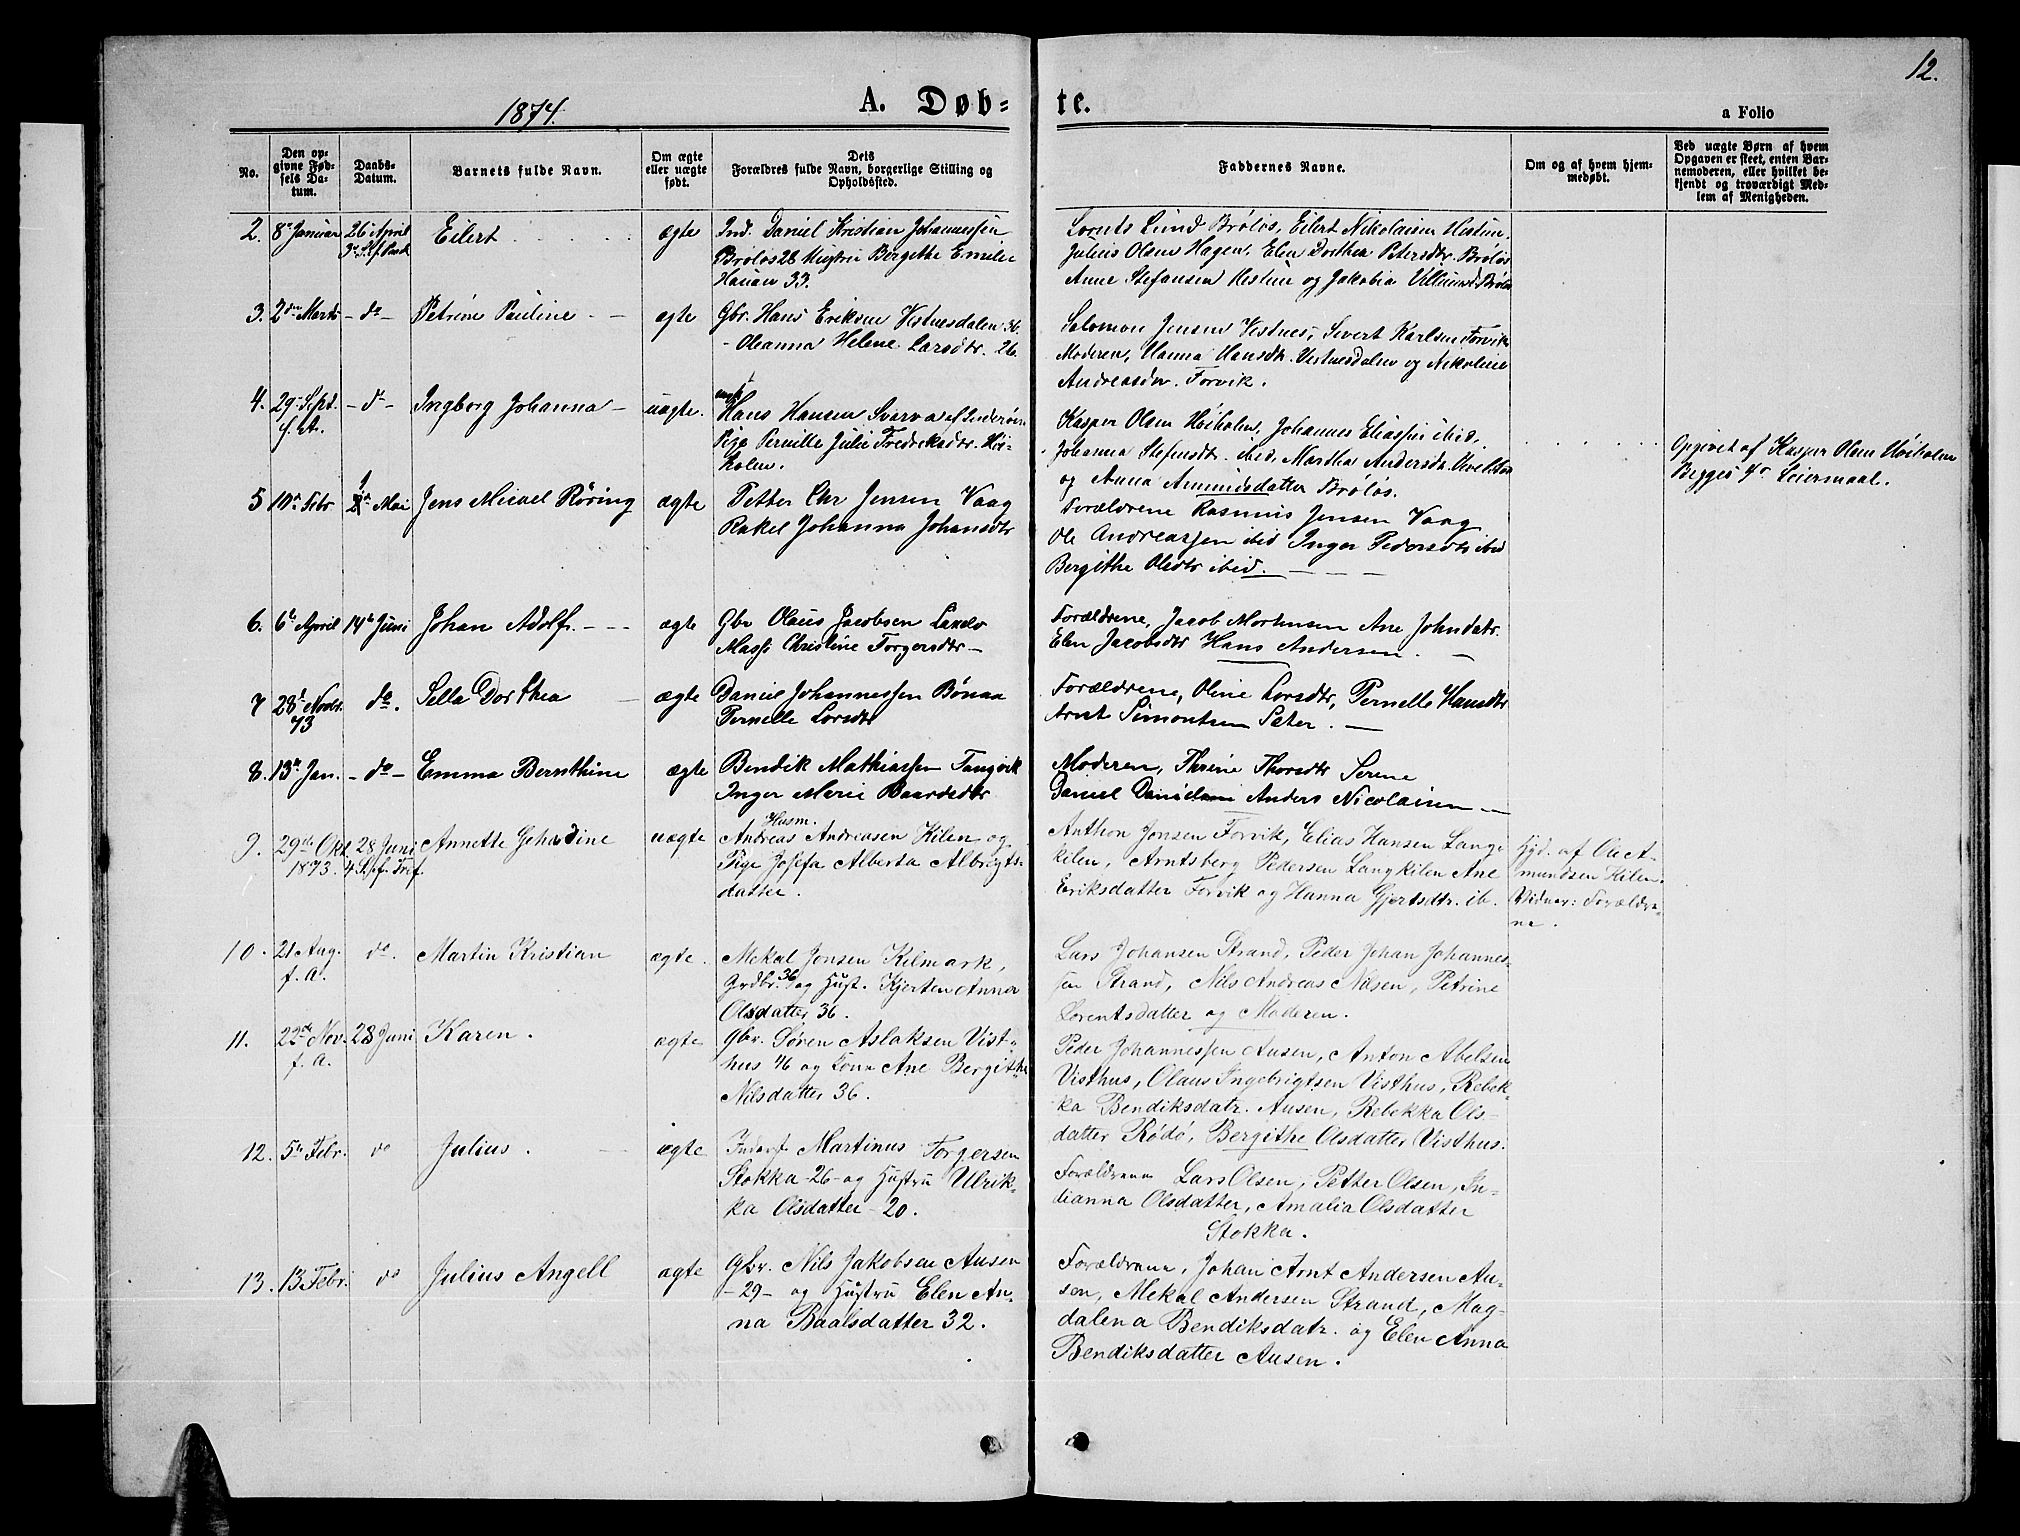 12.
1874.
A. Døb=
te.
a Folio
No.
Den op=
givne Fød=
sels Da=
tum.
Daabs=
Datum.
Barnets fulde Navn.
Om ægte
eller uægte
født.
Dets
Forældres fulde Navn, borgerlige Stilling og
Opholdssted.
Faddernes Navne.
Om og af hvem hjem=
medøbt.
Ved uægte Børn af hvem
Opgaven er skeet, enten Bar=
nemoderen, eller hvilket be=
kjendt og troværdigt Med=
lem af Menigheden.
2. 8de Januar 26 April Eilert ægte Ind. Daniel Kristian Johannessen
Brøløs 28 Hustru Bergithe Emilie
Hansen 33.
Lorents Lund Brøløs, Eilert Nikolaisen
Julius Olsen Hagen, Elen Dorthea Petersdtr. Brøløs
Anne Stefansen og Jakobia Brøløs
3. 2den Marts - do - Petrine Pauline - ægte Gbr. Hans Eriksen Vistnesdalen 36.
- Oleanna Helene Larsdtr. 26.
Salomon Jensen Vestnes, Sivert Karlsen Forvik
Moderen, Hanna Hansdtr. Vistnesdalen og Nikoline
Andreasdtr. Forvik.
4. 29. Sept. f. A. - do - Ingborg Johanna - uægte. Hans Hansen Svarva af Inderøen
Pige Pernille Julie Fredriksdtr. Høi-
holm.
Kasper Olsen Høiholm, Johannes Eliassen ibid.
Johanna Stefensdtr. ibid, Martha Andersdtr.
og Anna Amundsdatter Brøløs.
Opgivet af Kasper Olsen Høiholm
Begges 4de Leiermaal.
5 10de Febr Mai Jens Micael Røring ægte Petter Chr Jensen Vaag
Rakel Johanna Johansdtr
Forældrene Rasmus Jensen Vaag
Ole Andreassen ibid Inger Pedersdtr ibid
Bergithe Olsdtr ibid. - - -
6. 6te April 14de Juni Johan Adolf. - - - ægte Gbr Olaus Jacobsen
Christine Torgersdtr -
Forældrene, Jacob Mortensen Ane Johnsdatr.
Elen Jacobsdtr Hans Andersen. -
7 28de Novbr. 73 do. Sella Dorthea - ægte Daniel Johannessen Bønaa
Pernelle Larsdtr
Forældrene, Oline Larsdtr, Pernelle Hansdtr
Arnt Simontsen Sæter. -
8. 13de Jan. - do - Emma Bernthine ægte Bendik Mathiassen Tangvik
Inger Marie Baardsdtr
Moderen, Thrine Thorsdtr Serene
Daniel Danielsen Anders Nicolaisen -
9. 29de Okt. 1873. 28 Juni Annette Gehardine uægte Husm.
Andreas Andreasen Kilen og
Pige Josefa Alberta Albrigts-
datter.
Anthon Jonsen Forvik, Elias Hansen Lang-
kilen, Arntsberg Pedersen Langkilen Ane
Eriksdatter Forvik og Hanna Gjertsdtr. ib.
Hjd. af Ole A-
mundsen Kilen.
Vidner: Forældre-
ne.
10. 21 Aug. f. A. do. Martin Kristian ægte. Mekal Jonsen Kilmark,
Grdbr. 36 og Hust. Kjersten Anna
Olsdatter 36.
Lars Johansen Strand, Peder Johan Johannes-
sen Strand, Nils Andreas Nilsen, Petrine
Lorentsdatter og Moderen.
11. 22de Nov. f. A. 28 Juni Karen. ægte gbr. Søren Aslaksen Vist-
hus 46 og Kone Ane Bergithe
Nilsdatter 36.
Peder Johannessen Ausen, Anton Abelsen
Visthus, Olaus Ingebrigtsen Visthus, Rebek-
ka Bendiksdatr. Ausen, Rebekka Ols-
datter Rødø, Bergithe Olsdatter Visthus.
12. 5te Febr. do Julius. - ægte Martinus Torgersen
Stokka -26- og Hustru Ulrik-
ka Olsdatter -20.
Forældrene Lars Olsen, Petter Olsen, In-
dianna Olsdatter, Amalia Olsdatter
Stokka.
13. 13. Febr. do Julius Angell ægte gbr. Nils Jakobsen Ausen
-29- og Hustru Elen An-
na Baalsdatter 32.
Forældrene, Johan Arnt Andersen Au-
sen, Mekal Andersen Strand, Mag-
dalena Bendiksdatr. og Elen Anna
Bendiksdatter Ausen.